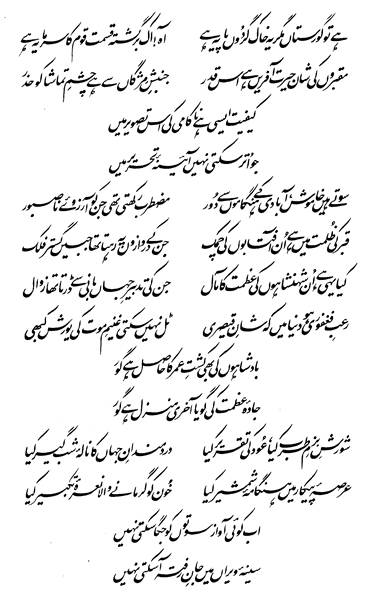 ہے تو گورستاں مگر یہ خاک گردوں پایہ ہے آہ! اک برگشتہ قسمت قوم کا سرمایہ ہے
مقبروں کی شان حیرت آفریں ہے اس قدر جنبش مژگاں سے ہے چشم تماشا کو حذر
کیفیت ایسی ہے ناکامی کی اس تصویر میں
جو اتر سکتی نہیں آئینۂ تحریر میں
سوتے ہیں خاموش، آبادی کے ہنگاموں سے دور مضطرب رکھتی تھی جن کو آرزوئے ناصبور
قبر کی ظلمت میں ہے ان آفتابوں کی چمک جن کے دروازوں پہ رہتا تھا جبیں گستر فلک
کیا یہی ہے ان شہنشاہوں کی عظمت کا مآل جن کی تدبیر جہاں بانی سے ڈرتا تھا زوال
رعب فغفوری ہو دنیا میں کہ شان قیصری ٹل نہیں سکتی غنیم موت کی یورش کبھی
بادشاہوں کی بھی کشت عمر کا حاصل ہے گور
جادۂ عظمت کی گویا آخری منزل ہے گور
شورش بزم طرب کیا، عود کی تقریر کیا دردمندان جہاں کا نالۂ شب گیر کیا
عرصۂ پیکار میں ہنگامۂ شمشیر کیا خون کو گرمانے والا نعرۂ تکبیر کیا
اب کوئی آواز سوتوں کو جگا سکتی نہیں
سینۂ ویراں میں جان رفتہ آ سکتی نہیں